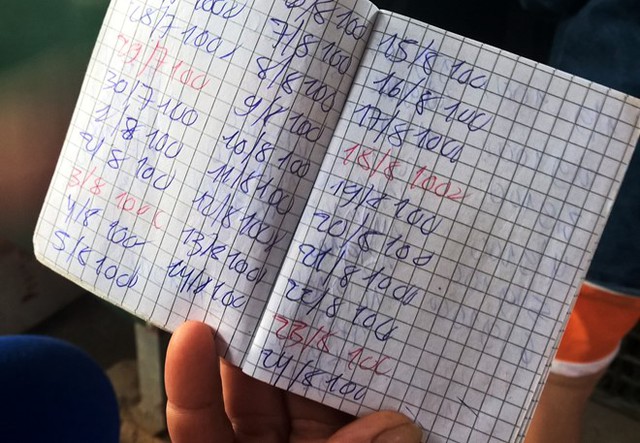 28/7 100
29/7 100
30/7 100
1/8 100
2/8 100
3/8 100
4/8 100
5/8 100
6/8 100
7/8 100
8/8 100
9/8 100
10/8 100
11/8 100
12/8 100
13/8 100
14/8 100
15/8 100
16/8 100
17/8 100
18/8 100
19/8 100
20/8 100
21/8 100
22/8 100
23/8 100
24/8 100